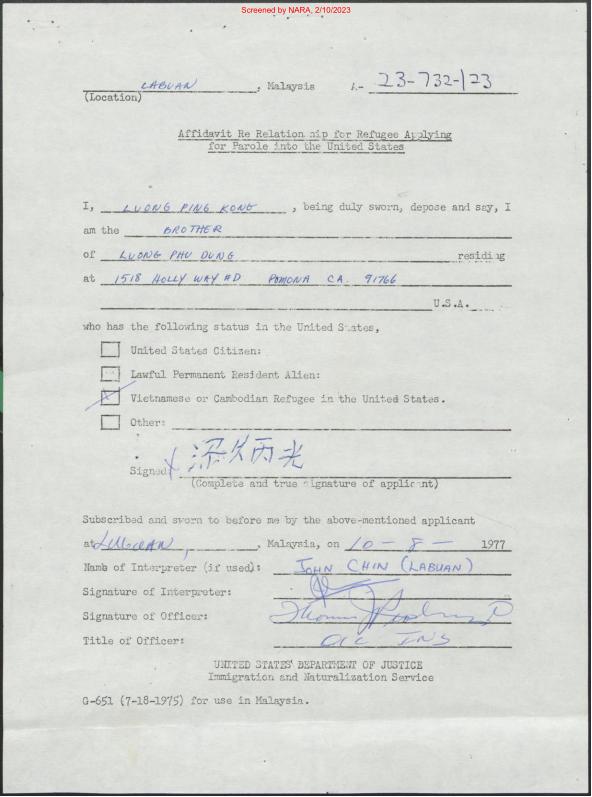 Screened by NARA, 2/10/2023
LABUAN, Malaysia A- 23-732-123
(Location)
Affidavit Re Relationship for Refugee Applying
for Parole into the United States
I, LUONG PING KONG, being duly sworn, depose and say, I
am the BROTHER
of LUONG PHU DUNG residing
at 1518 HOLLY WAY #D POMONA CA. 91766
U.S.A.
who has the following status in the United States,
United States Citizen:
Lawful Permanent Resident Alien:
Vietnamese or Cambodian Refugee in the United States.
Other:
Signed X 丙光
(Complete and true signature of applicant)
Subscribed and sworn to before me by the above-mentioned applicant
at LABUAN, Malaysia, on 10-8- 1977
Name of Interpreter (if used): JOHN CHIN (LABUAN)
Signature of Interpreter:
Signature of Officer: Thomas J
Title of Officer: OIC INS
UNITED STATES DEPARTMENT OF JUSTICE
Immigration and Naturalization Service
G-651 (7-18-1975) for use in Malaysia.